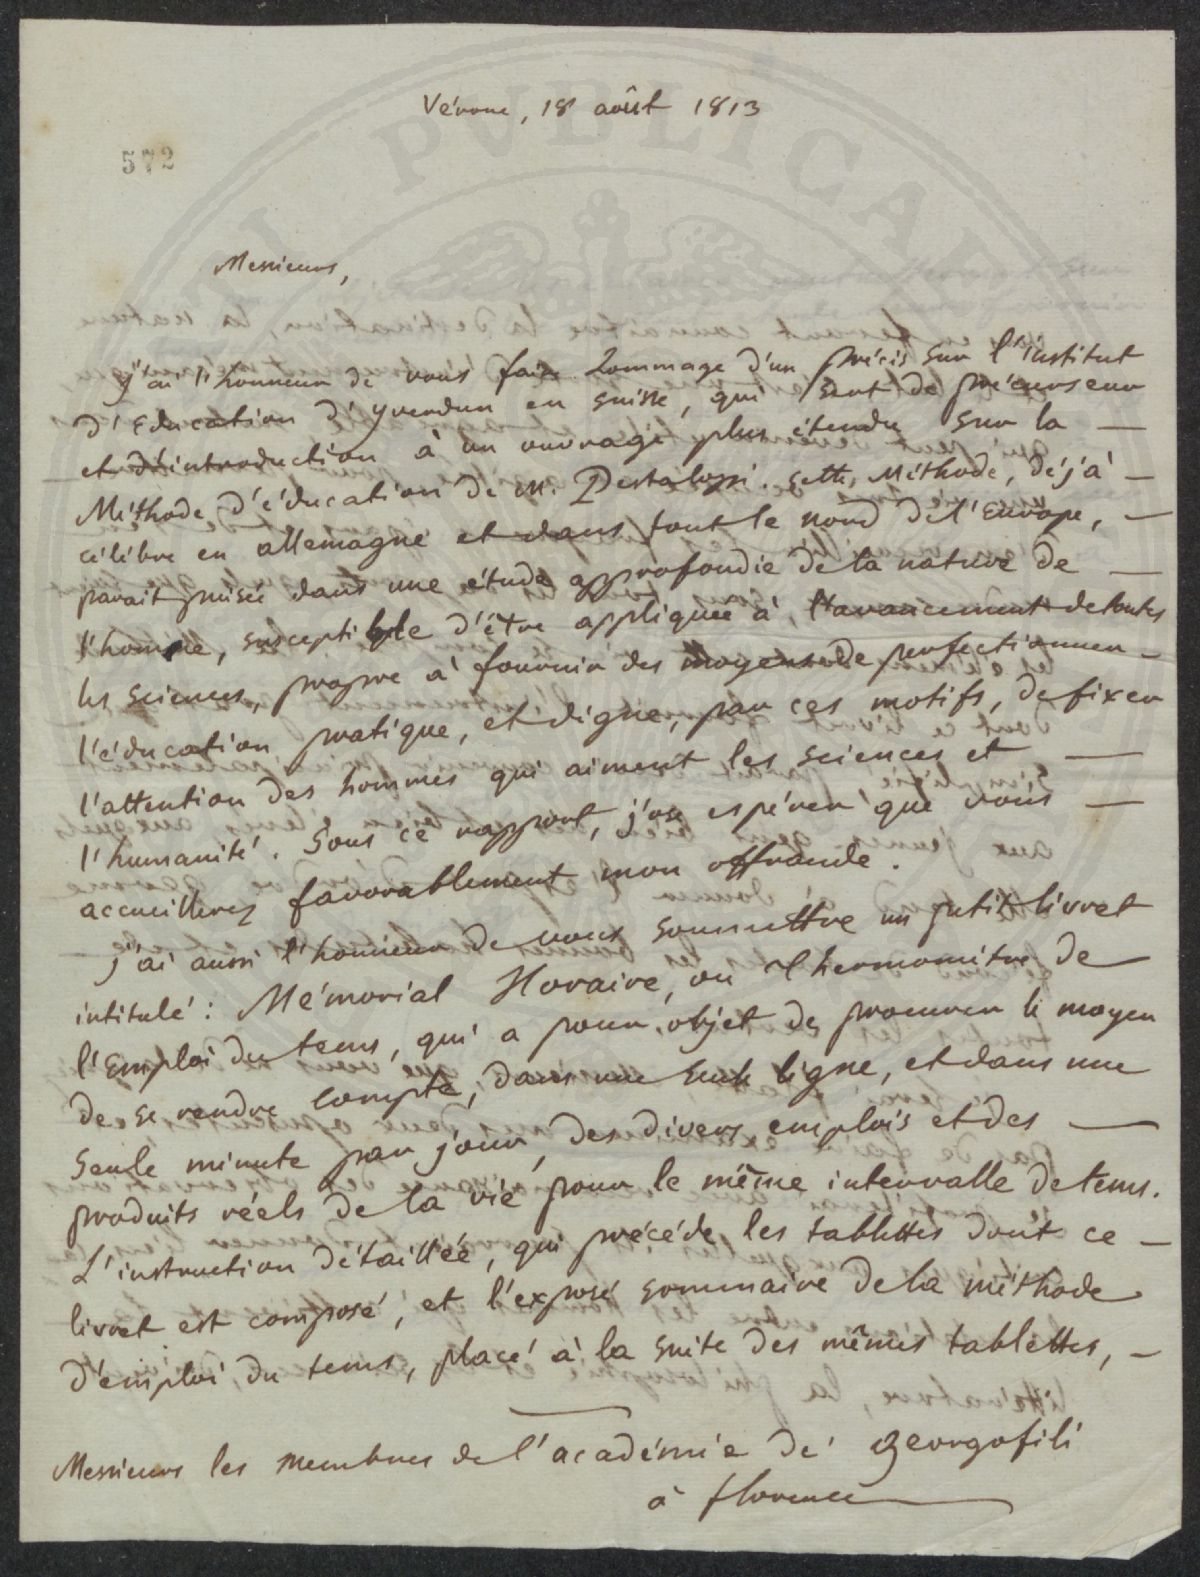 Vérone, 18 août 1813
572
Messieurs,
j'ai l'honneur de vous faire hommage d'un précis sur l'institut
d'Education d'yverdun en suisse, qui sert de précurseur
et d'introduction à un ouvrage plus étendu sur la —
Méthode d'éducation de M. Pestalozzi. cette Méthode, déjà —
célèbre en allemagne et dans tout le nord de l'Europe, —
parait puisée dans une étude approfondie de la nature de —
l'homme, susceptible d'être appliquée à l'avancement de toutes
les sciences, propre à fournir des moyens de perfectionner —
l'éducation pratique, et digne, par ces motifs, de fixer
l'attention des hommes qui aiment les sciences et —
l'humanité. Sous ce rapport, j'ose espérer que vous —
accueillerez favorablement mon offrande.
j'ai aussi l'honneur de vous soumettre un petit livret
intitulé: Mémorial Horaire, ou Thermomètre de
l'Emploi du tems, qui a pour objet de procurer le moyen
de se rendre compte, dans une seule ligne, et dans une
seule minute par jour, des divers emplois et des —
produits réels de la vie pour le même intervalle de tems.
L'instruction détaillée, qui précède les tablettes dont ce —
livret est composé, et l'exposé sommaire de la méthode
d'emploi du tems, placé à la suite des mêmes tablettes, —
Messieurs les membres de l'académie de' georgofili
à florence
PUBLICA